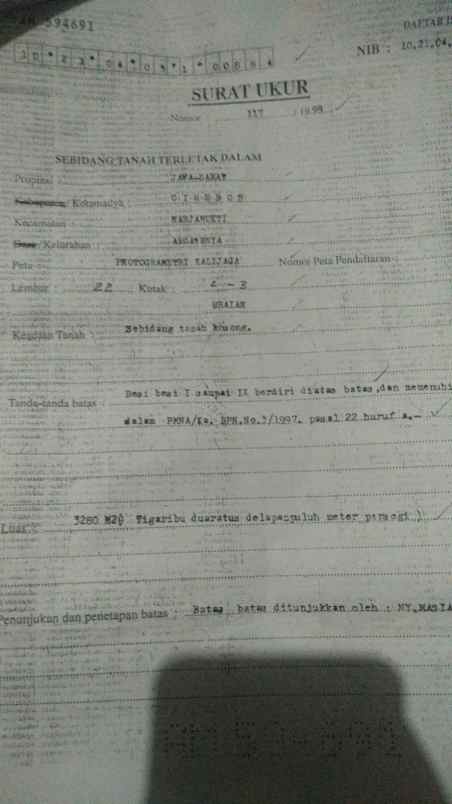 594691
DAFTAR
NIB : 10.21.04.
SURAT UKUR
Nomor 117 / 1999
SEBIDANG TANAH TERLETAK DALAM
Propinsi : JAWA-BARAT
Kabupaten, Kotamadya : CIREBON
Kecamatan : HARJAMUKTI
Desa, Kelurahan : ARGASUNYA
Peta : PHOTOGRAMETRI KALIJAGA Nomor Peta Pendaftaran :
Lembar : 22 Kotak : - 3
URAIAN
Keadaan Tanah : Sebidang tanah kosong.
Tanda-tanda batas : Besi besi I sampai IX berdiri diatas batas,dan memenuhi
dalam PMNA/Ka. BPN.No.3/1997. pasal 22 huruf a.-
Luas : 3280 M2( Tigaribu duaratus delapanpuluh meter persegi )
Penunjukan dan penetapan batas : Batas batas ditunjukkan oleh : NY.